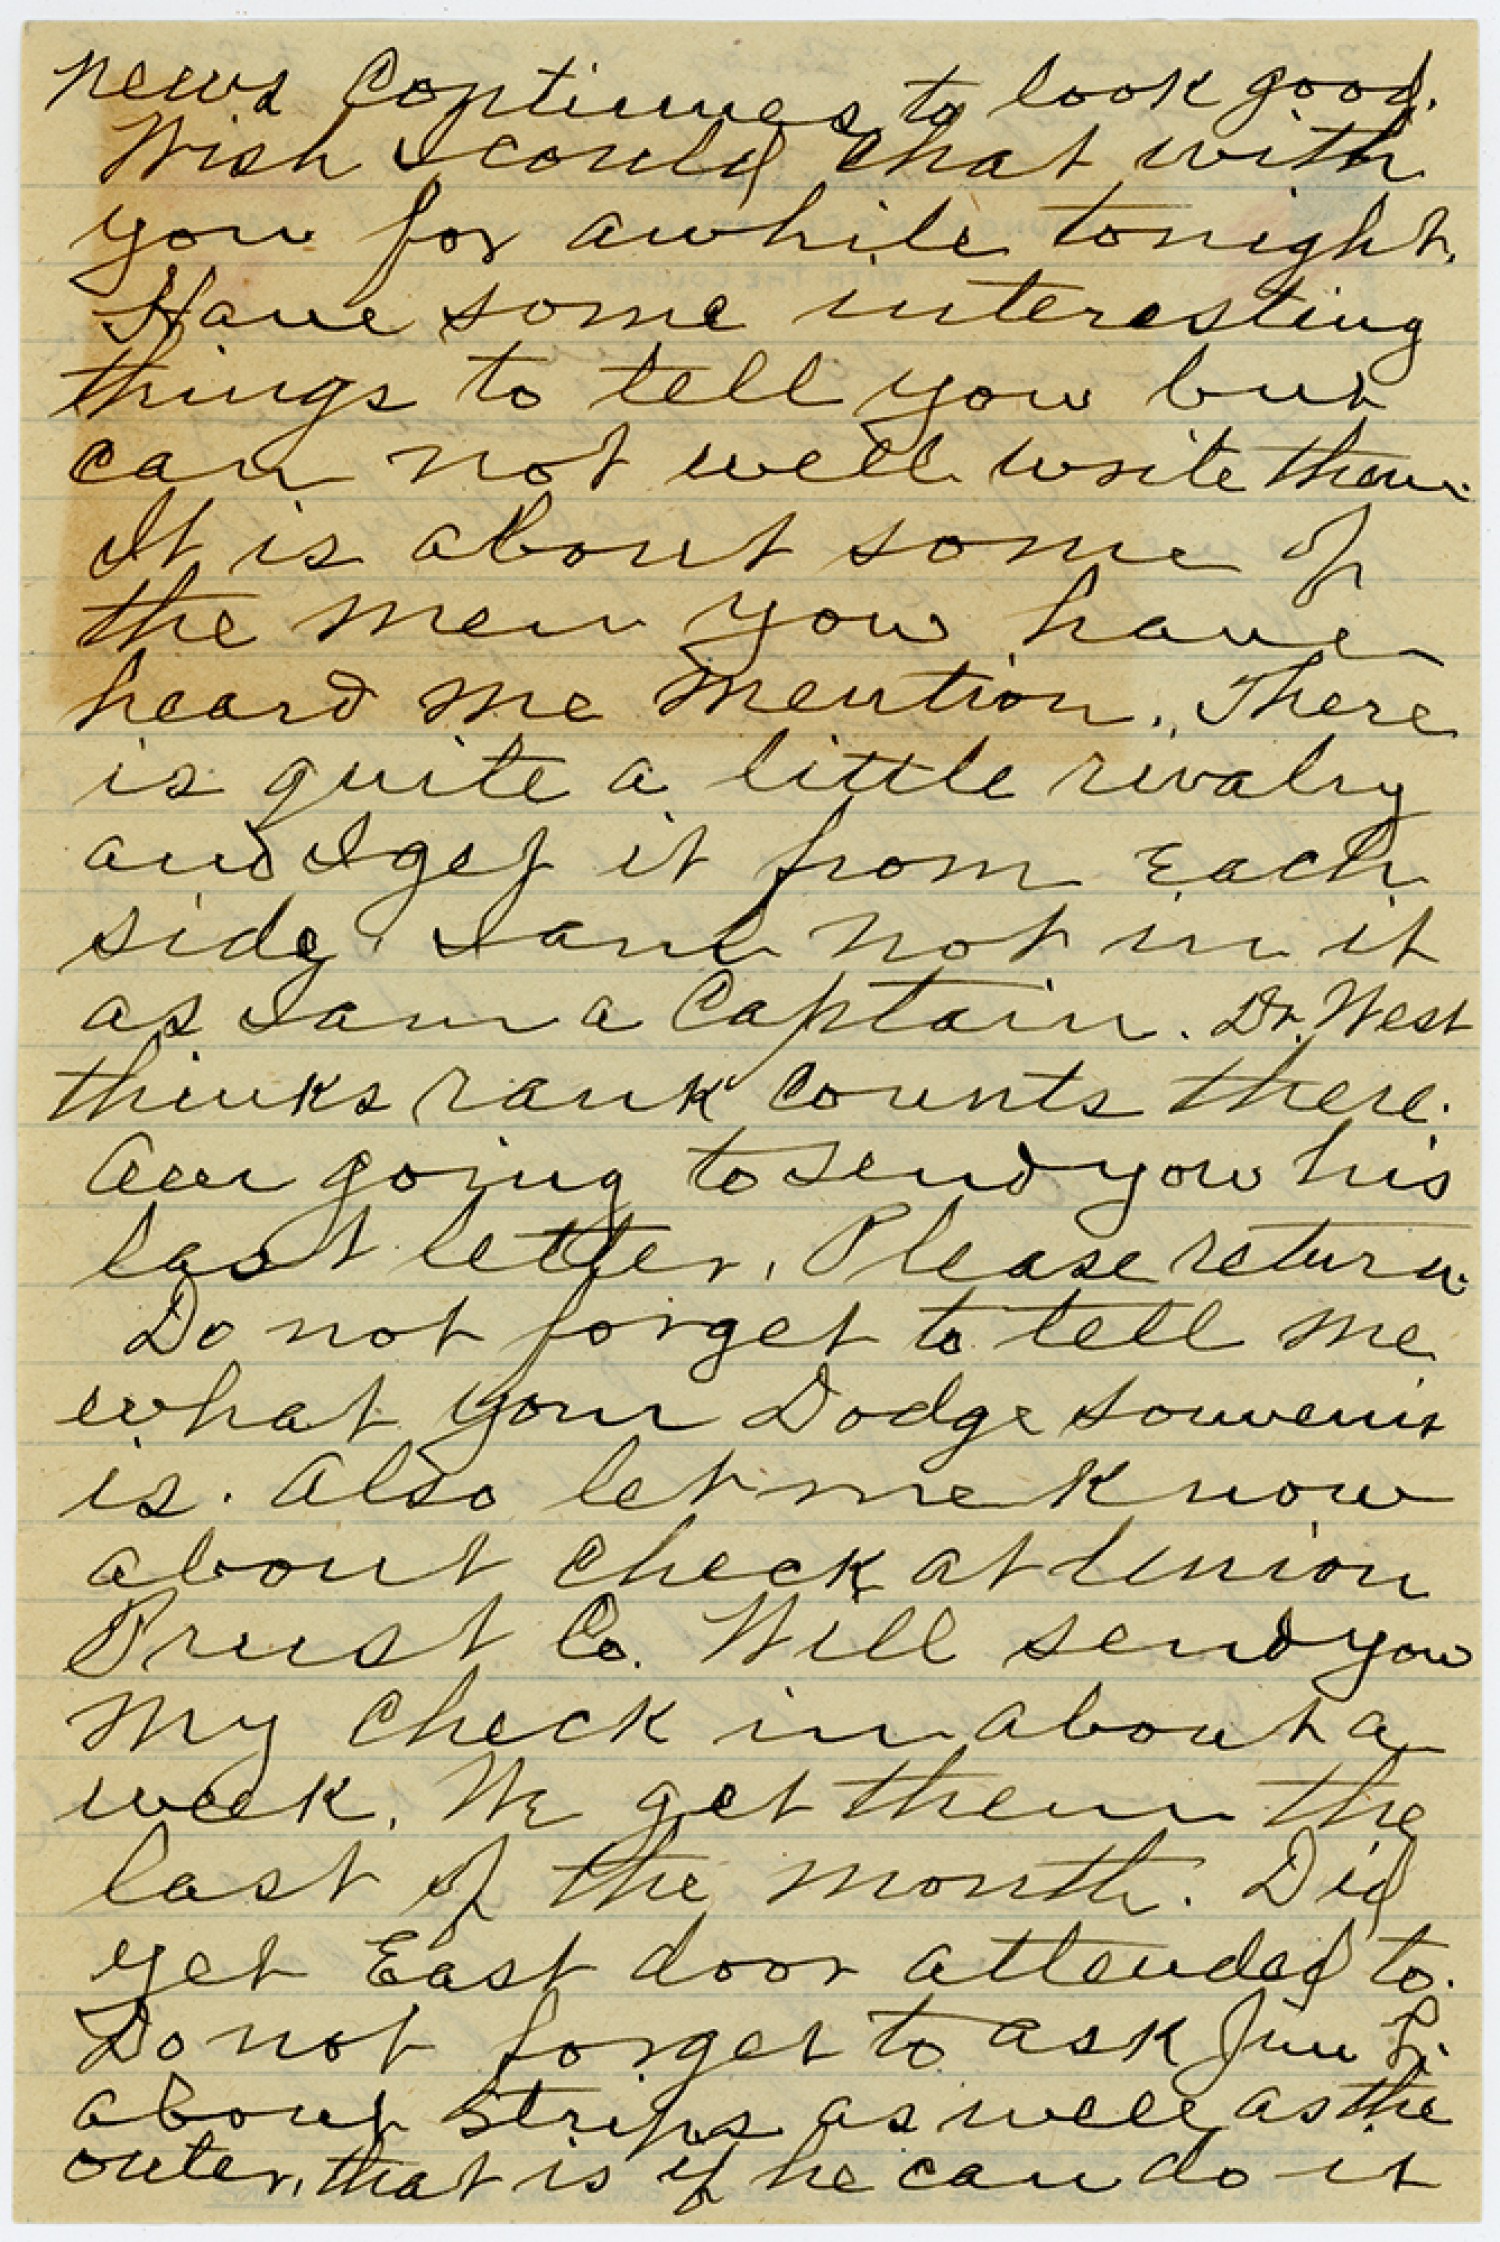 news continues to look good.
Wish I could chat with
you for awhile tonight.
Have some interesting
things to tell you but
can not well write them.
It is about some of
the men you have
heard me mention. There
is quite a little rivalry
and I get it from Each
side. I am not in it
as I am a Captain. Dr. West
thinks rank counts there.
Am going to send you his
last letter. Please return.
Do not forget to tell me
what your Dodge souvenir
is. Also let me know
about check at Union
Trust Co. Will send you
my check in about a
week. We get them the
last of the month. Did
get East door attended to.
Do not forget to ask Jim L.
about strips as well as the
outer, that is if he can do it